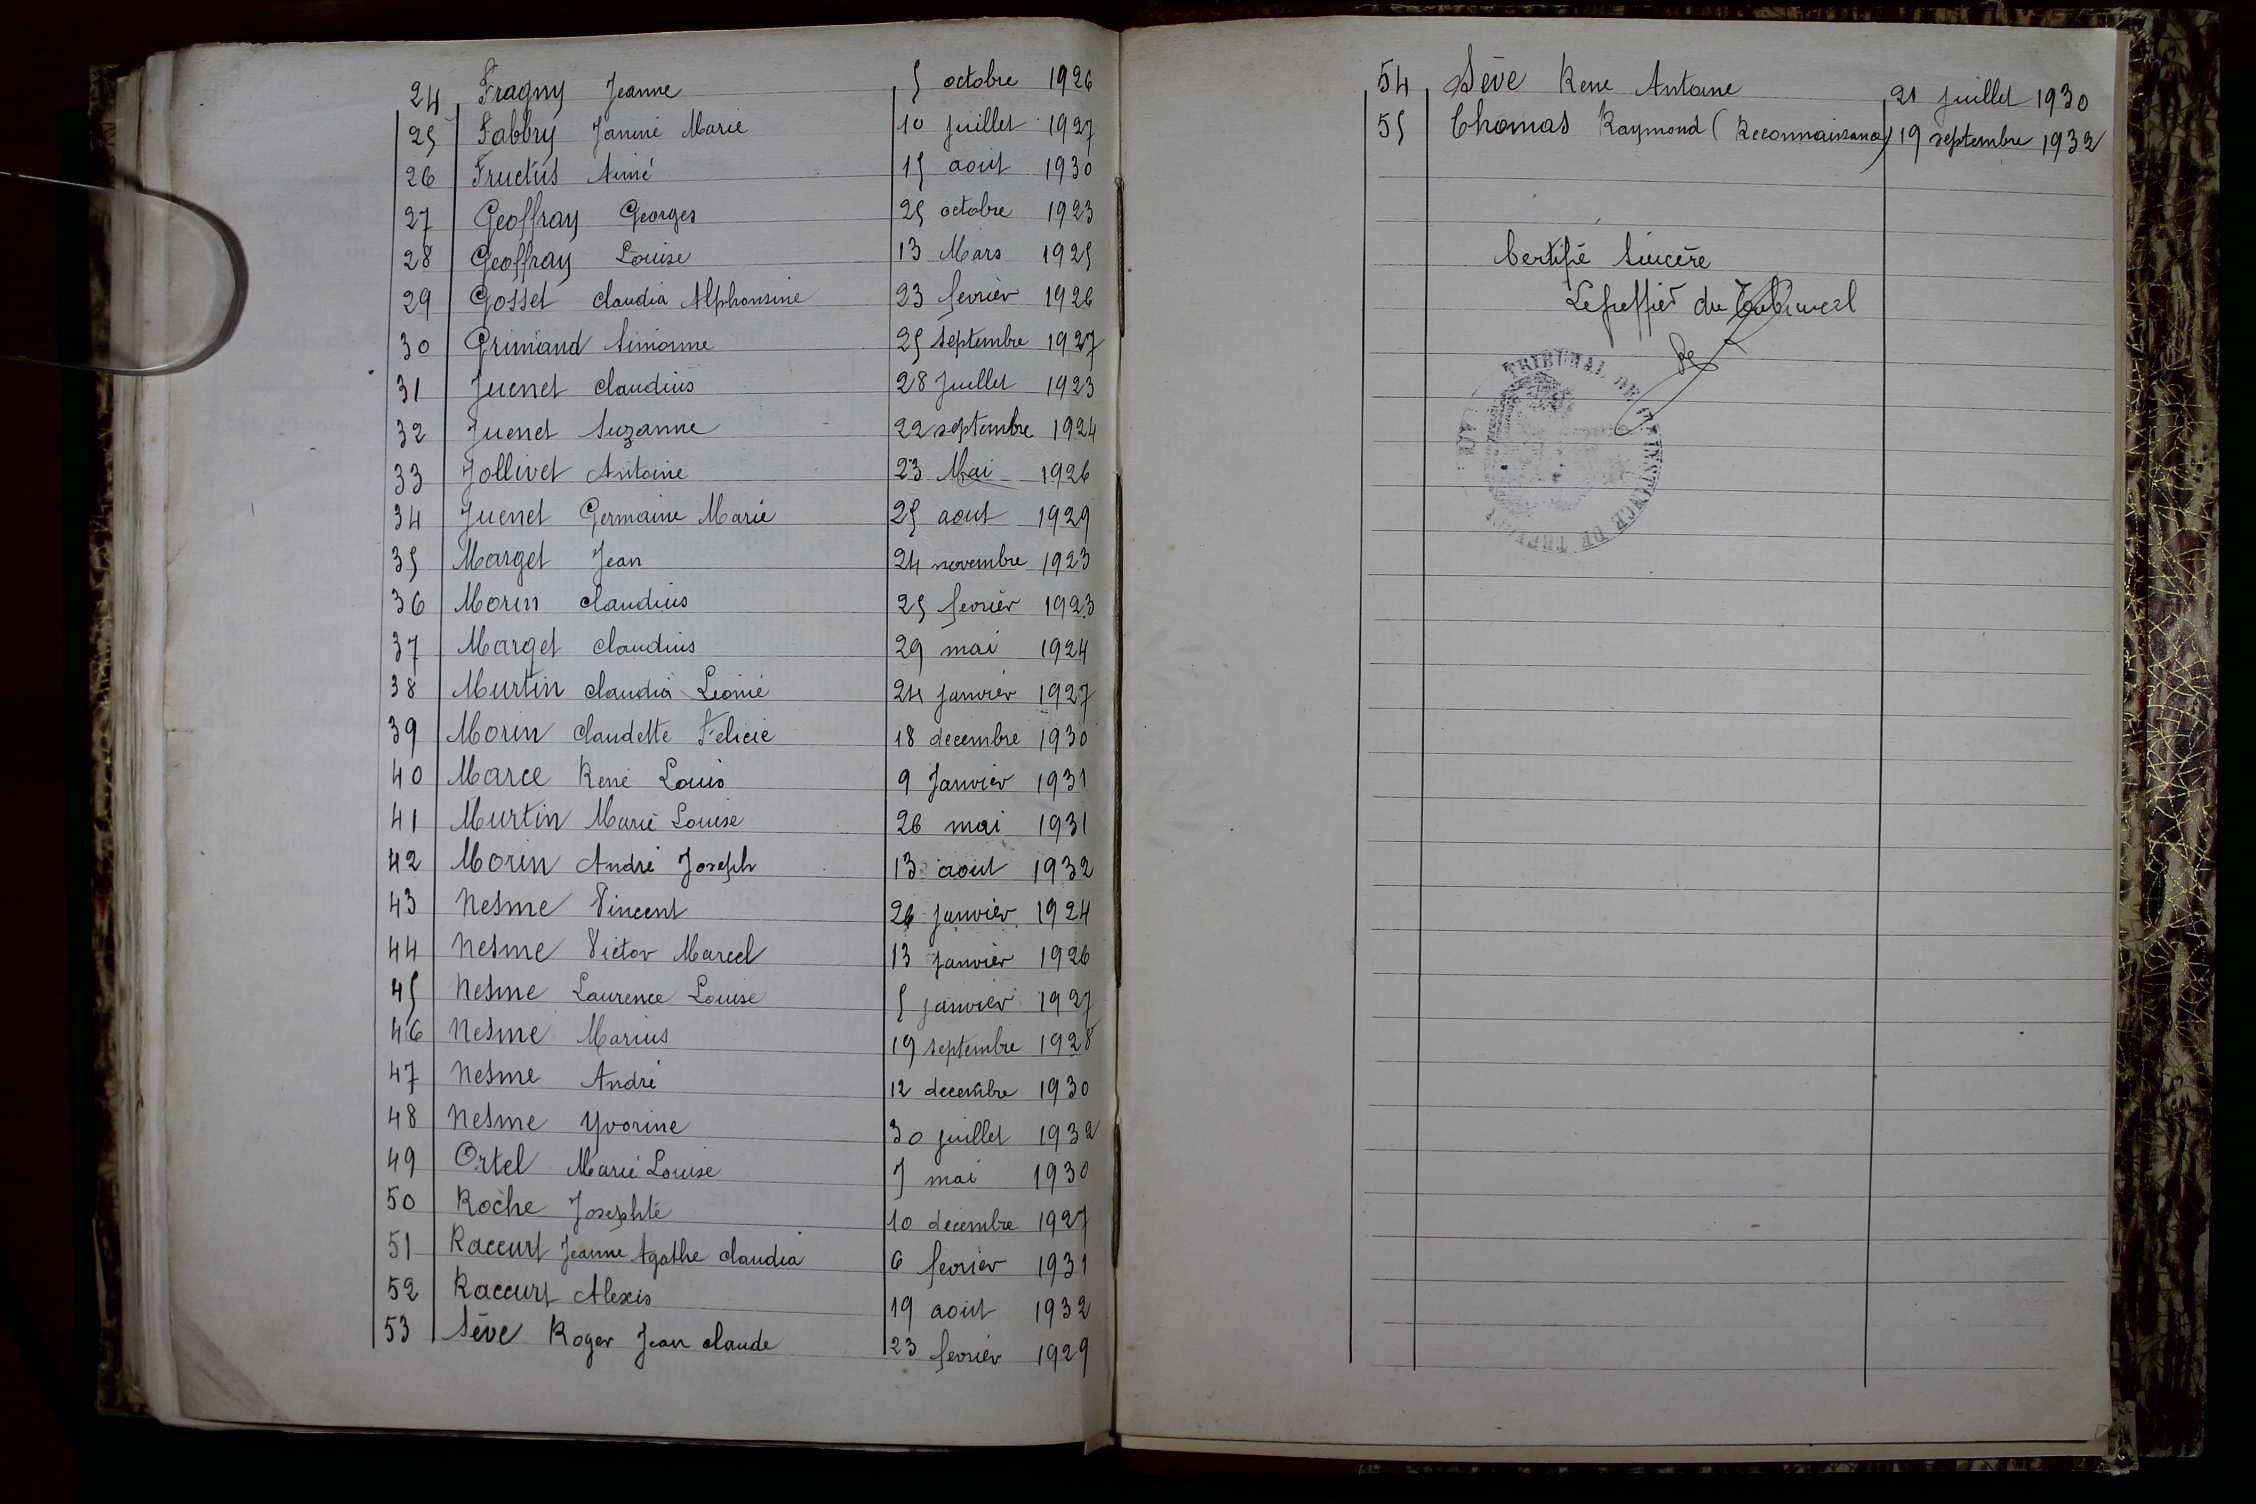 24 Fragny Jeanne 5 octobre 1926
25 Fabbry Janine Marie 10 juillet 1927
26 Fructus Aimé 15 aout 1930
27 Geoffray Georges 25 octobre 1923
28 Geoffray Louise 13 Mars 1925
29 Gosset claudia Alphonsine 23 fevrier 1926
30 Grimand Simonne 25 septembre 1927
31 Juenet claudius 28 Juillet 1923
32 Juenet Suzanne 22 septembre 1924
33 Jollivet Antoine 23 Mai 1926
34 Juenet Germaine Marie 25 aout 1929
35 Marget Jean 24 novembre 1923
36 Morin claudius 25 fevrier 1923
37 Marget claudius 29 mai 1924
38 Murtin claudia Leonie 24 janvier 1927
39 Morin claudette Felicie 18 decembre 1930
40 Marce René Louis 9 Janvier 1931
41 Murtin Marie Louise 26 mai 1931
42 Morin André Joseph 13 aout 1932
43 Nesme Vincent 26 janvier 1924
44 Nesme Victor Marcel 13 janvier 1926
45 Nesme Laurence Louise 5 janvier 1927
46 Nesme Marius 19 septembre 1928
47 Nesme André 12 decembre 1930
48 Nesme Yvonne 30 juillet 1932
49 Ortel Marie Louise 7 mai 1930
50 Roche Josephte 10 decembre 1927
51 Raccurt Jeanne Agathe claudia 6 fevrier 1931
52 Raccurt Alexis 19 aout 1932
53 Sève Roger Jean claude 23 fevrier 1929
54 Sève Rene Antoine 21 juillet 1930
55 Thomas Raymond (Reconnaissance) 19 septembre 1932
Certifié Sincère
Le greffier du Tribunal
TRIBUNAL DE 1ERE INSTANCE DE TREVOUX